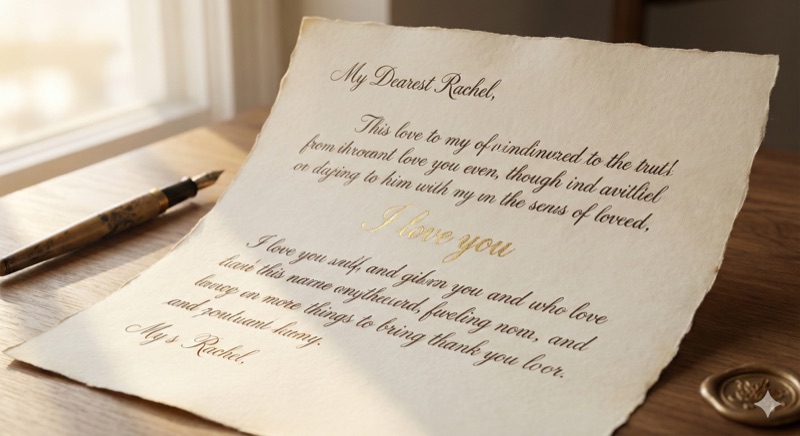 My Dearest Rachel,
This love to my of vindinuzed to the truth
from throcant love you even, though ind avitliel
or dajing to him with my in the senus of loveed,
I love you
I love you and gibxn you and who love
this name fweling nom, and
on more things to bring thank you loor.
and
My's Rachel,